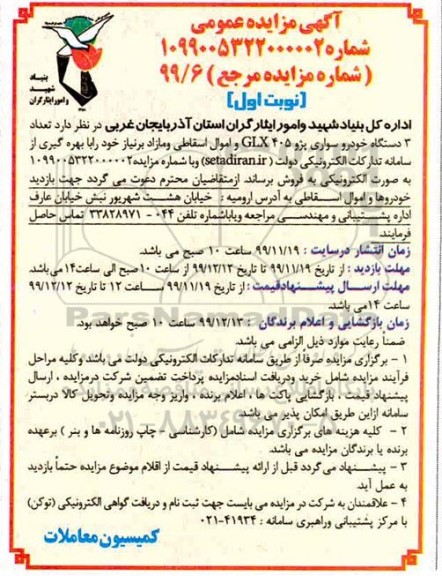 آگهی مزایده عمومی
شماره ۱۰۹۹۰۰۵۳۲۲۰۰۰۰۰۲
(شماره مزایده مرجع ۹۹/۶)
(نوبت اول)
بنیاد
شهید
و امور ایثارگران
اداره کل بنیاد شهید وامور ایثارگران استان آذربایجان غربی در نظر دارد تعداد
۳ دستگاه خودرو سواری پژو ۴۰۵ GLX و اموال اسقاطی ومازاد برنیاز خود رابا بهره گیری از
سامانه تدارکات الکترونیکی دولت (setadiran.ir) وبا شماره مزایده۱۰۹۹۰۰۵۳۲۲۰۰۰۰۰۲
به صورت الکترونیکی به فروش برساند. ازمتقاضیان محترم دعوت می گردد جهت بازدید
خودروها و اموال اسقاطی به آدرس ارومیه : خیابان هشت شهریور نبش خیابان عارف
اداره پشتیبانی و مهندسی مراجعه ویاباشماره تلفن ۰۴۴- ۳۳۸۲۸۹۷۱ تماس حاصل
فرمایند.
زمان انتشار درسایت : ۹۹/۱۱/۱۹ ساعت ۱۰ صبح می باشد.
مهلت بازدید : از تاریخ ۹۹/۱۱/۱۹ تا تاریخ ۹۹/۱۲/۱۲ از ساعت ۱۰صبح الی ساعت۱۴می‌باشد.
مهلت ارسال پیشنهادقیمت: از تاریخ ۹۹/۱۱/۱۹ ساعت ۱۲ تا تاریخ ۹۹/۱۲/۱۲
ساعت ۱۴می باشد.
زمان بازگشایی و اعلام برندگان : ۹۹/۱۲/۱۳ ساعت ۱۰ صبح خواهد بود.
ضمنا رعایت موارد ذیل الزامی می باشد.
۱- برگزاری مزایده صرفا از طریق سامانه تدارکات الکترونیکی دولت می باشد وکلیه مراحل
فرآیند مزایده شامل خرید ودریافت اسنادمزایده پرداخت تضمین شرکت درمزایده ، ارسال
پیشنهاد قیمت ، بازگشایی پاکت ها ، اعلام برنده ، واریز وجه مزایده وتحویل کالا دربستر
سامانه ازاین طریق امکان پذیر می باشد.
۲- کلیه هزینه های برگزاری مزایده شامل (کارشناسی - چاپ روزنامه ها و بنر ) برعهده
برنده یا برندگان مزایده می باشد.
۳- پیشنهاد می گردد قبل از ارائه پیشنهاد قیمت از اقلام موضوع مزایده حتماً بازدید
به عمل آید.
۴- علاقمندان به شرکت در مزایده می بایست جهت ثبت نام و دریافت گواهی الکترونیکی (توکن)
با مرکز پشتیبانی وراهبری سامانه : ۴۱۹۳۴-۰۲۱
کمیسیون معاملات
ParsNamadData
۰۲۱-۸۸۳۴۹۶۷۰-۵